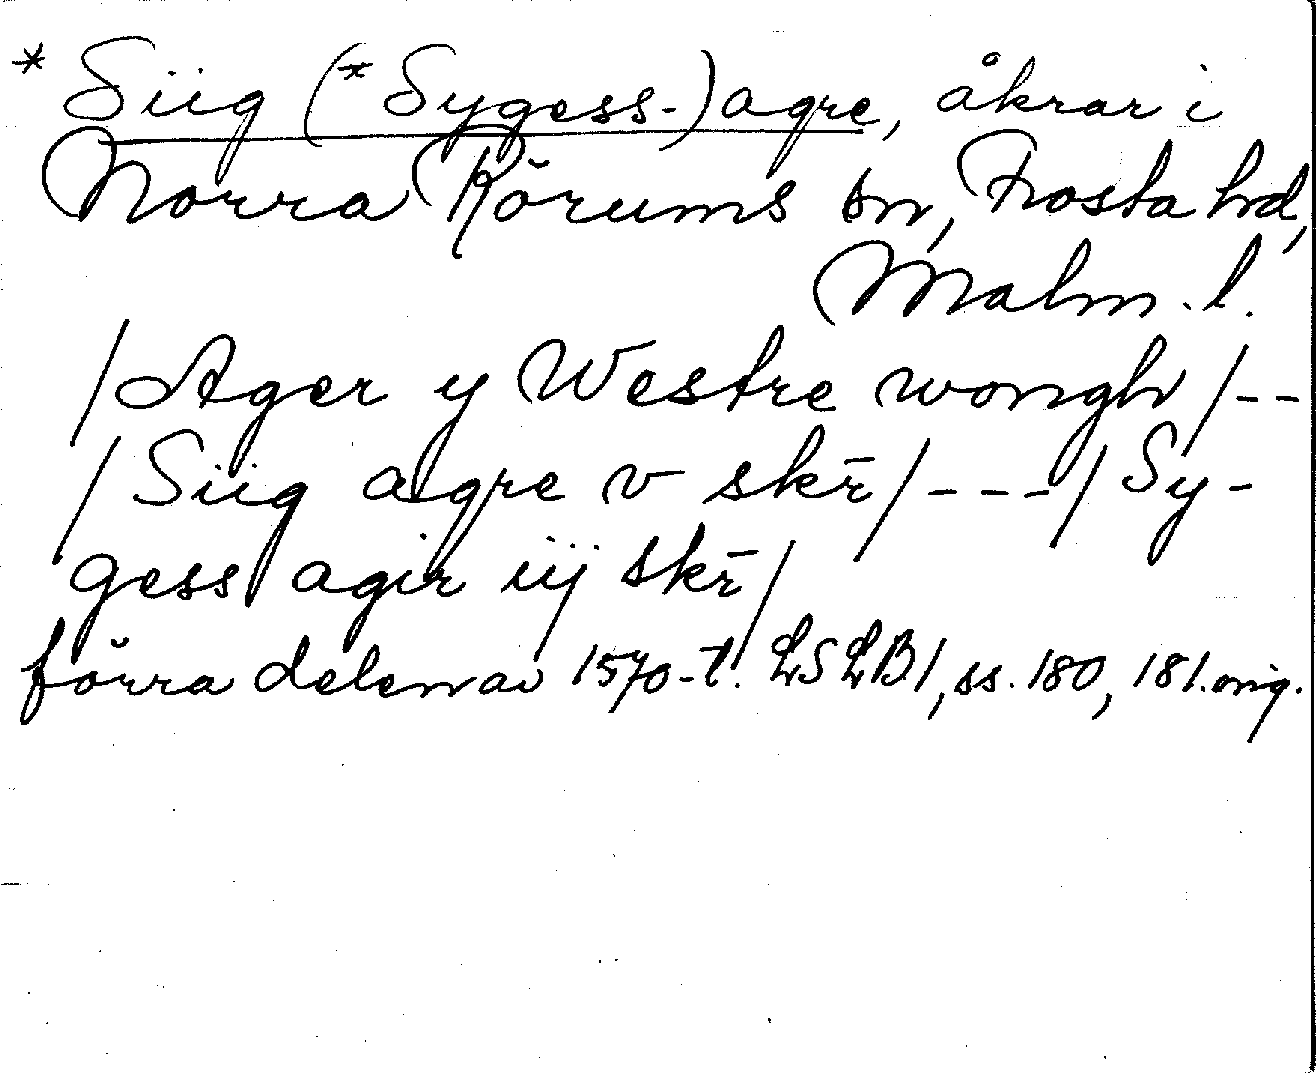 * Siig (*Sygess-)agre, åkrar i
Norra Rörums sn, Frosta hd,
Malm. l.
/Ager y Westre wongh/--
/Siig agre v skr̄/---/Sy-
gess agir iij skr̄/
förra delen av 1570-t. LSLB1, ss. 180, 181. orig.